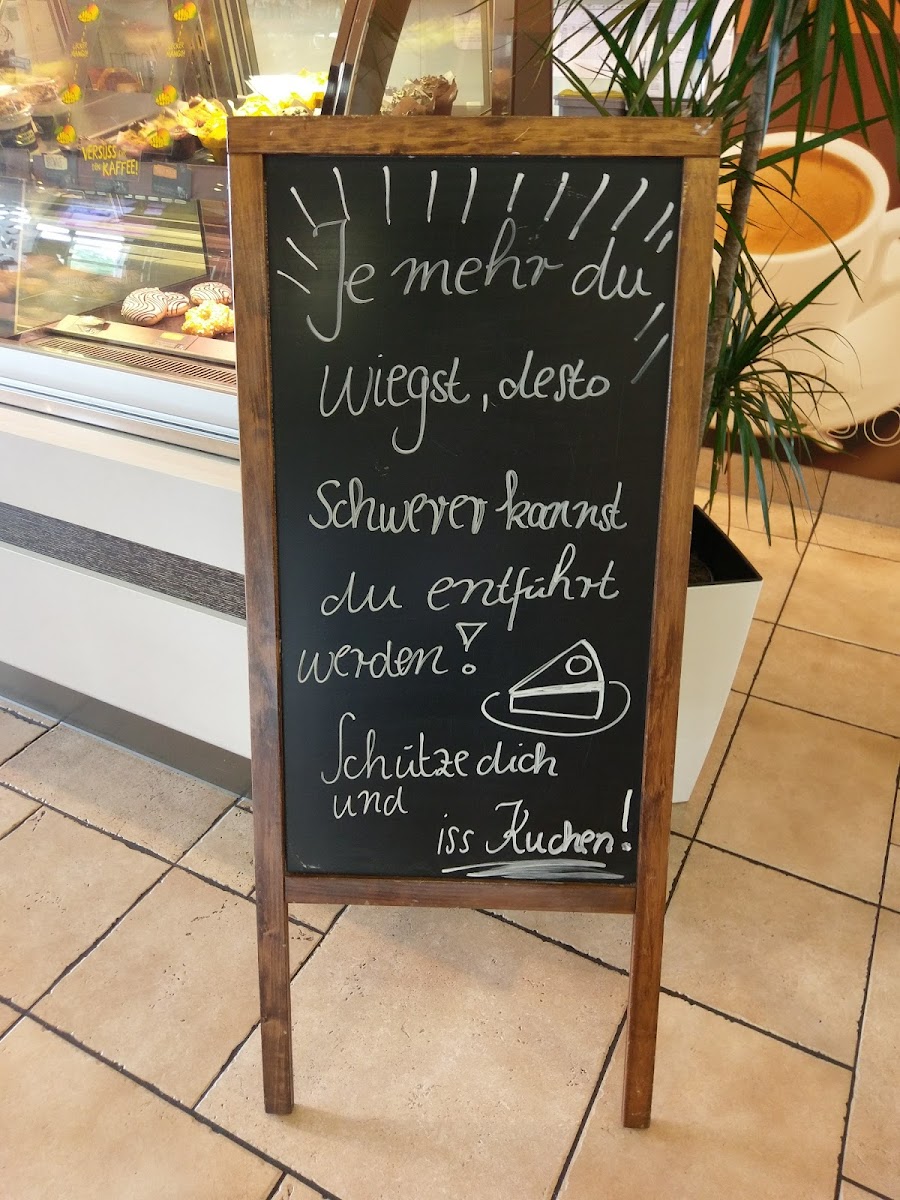 VERSÜSS
DEN KAFFEE!
Je mehr du
wiegst, desto
schwerer kannst
du entführt
werden!
Schütze dich
und
iss Kuchen!